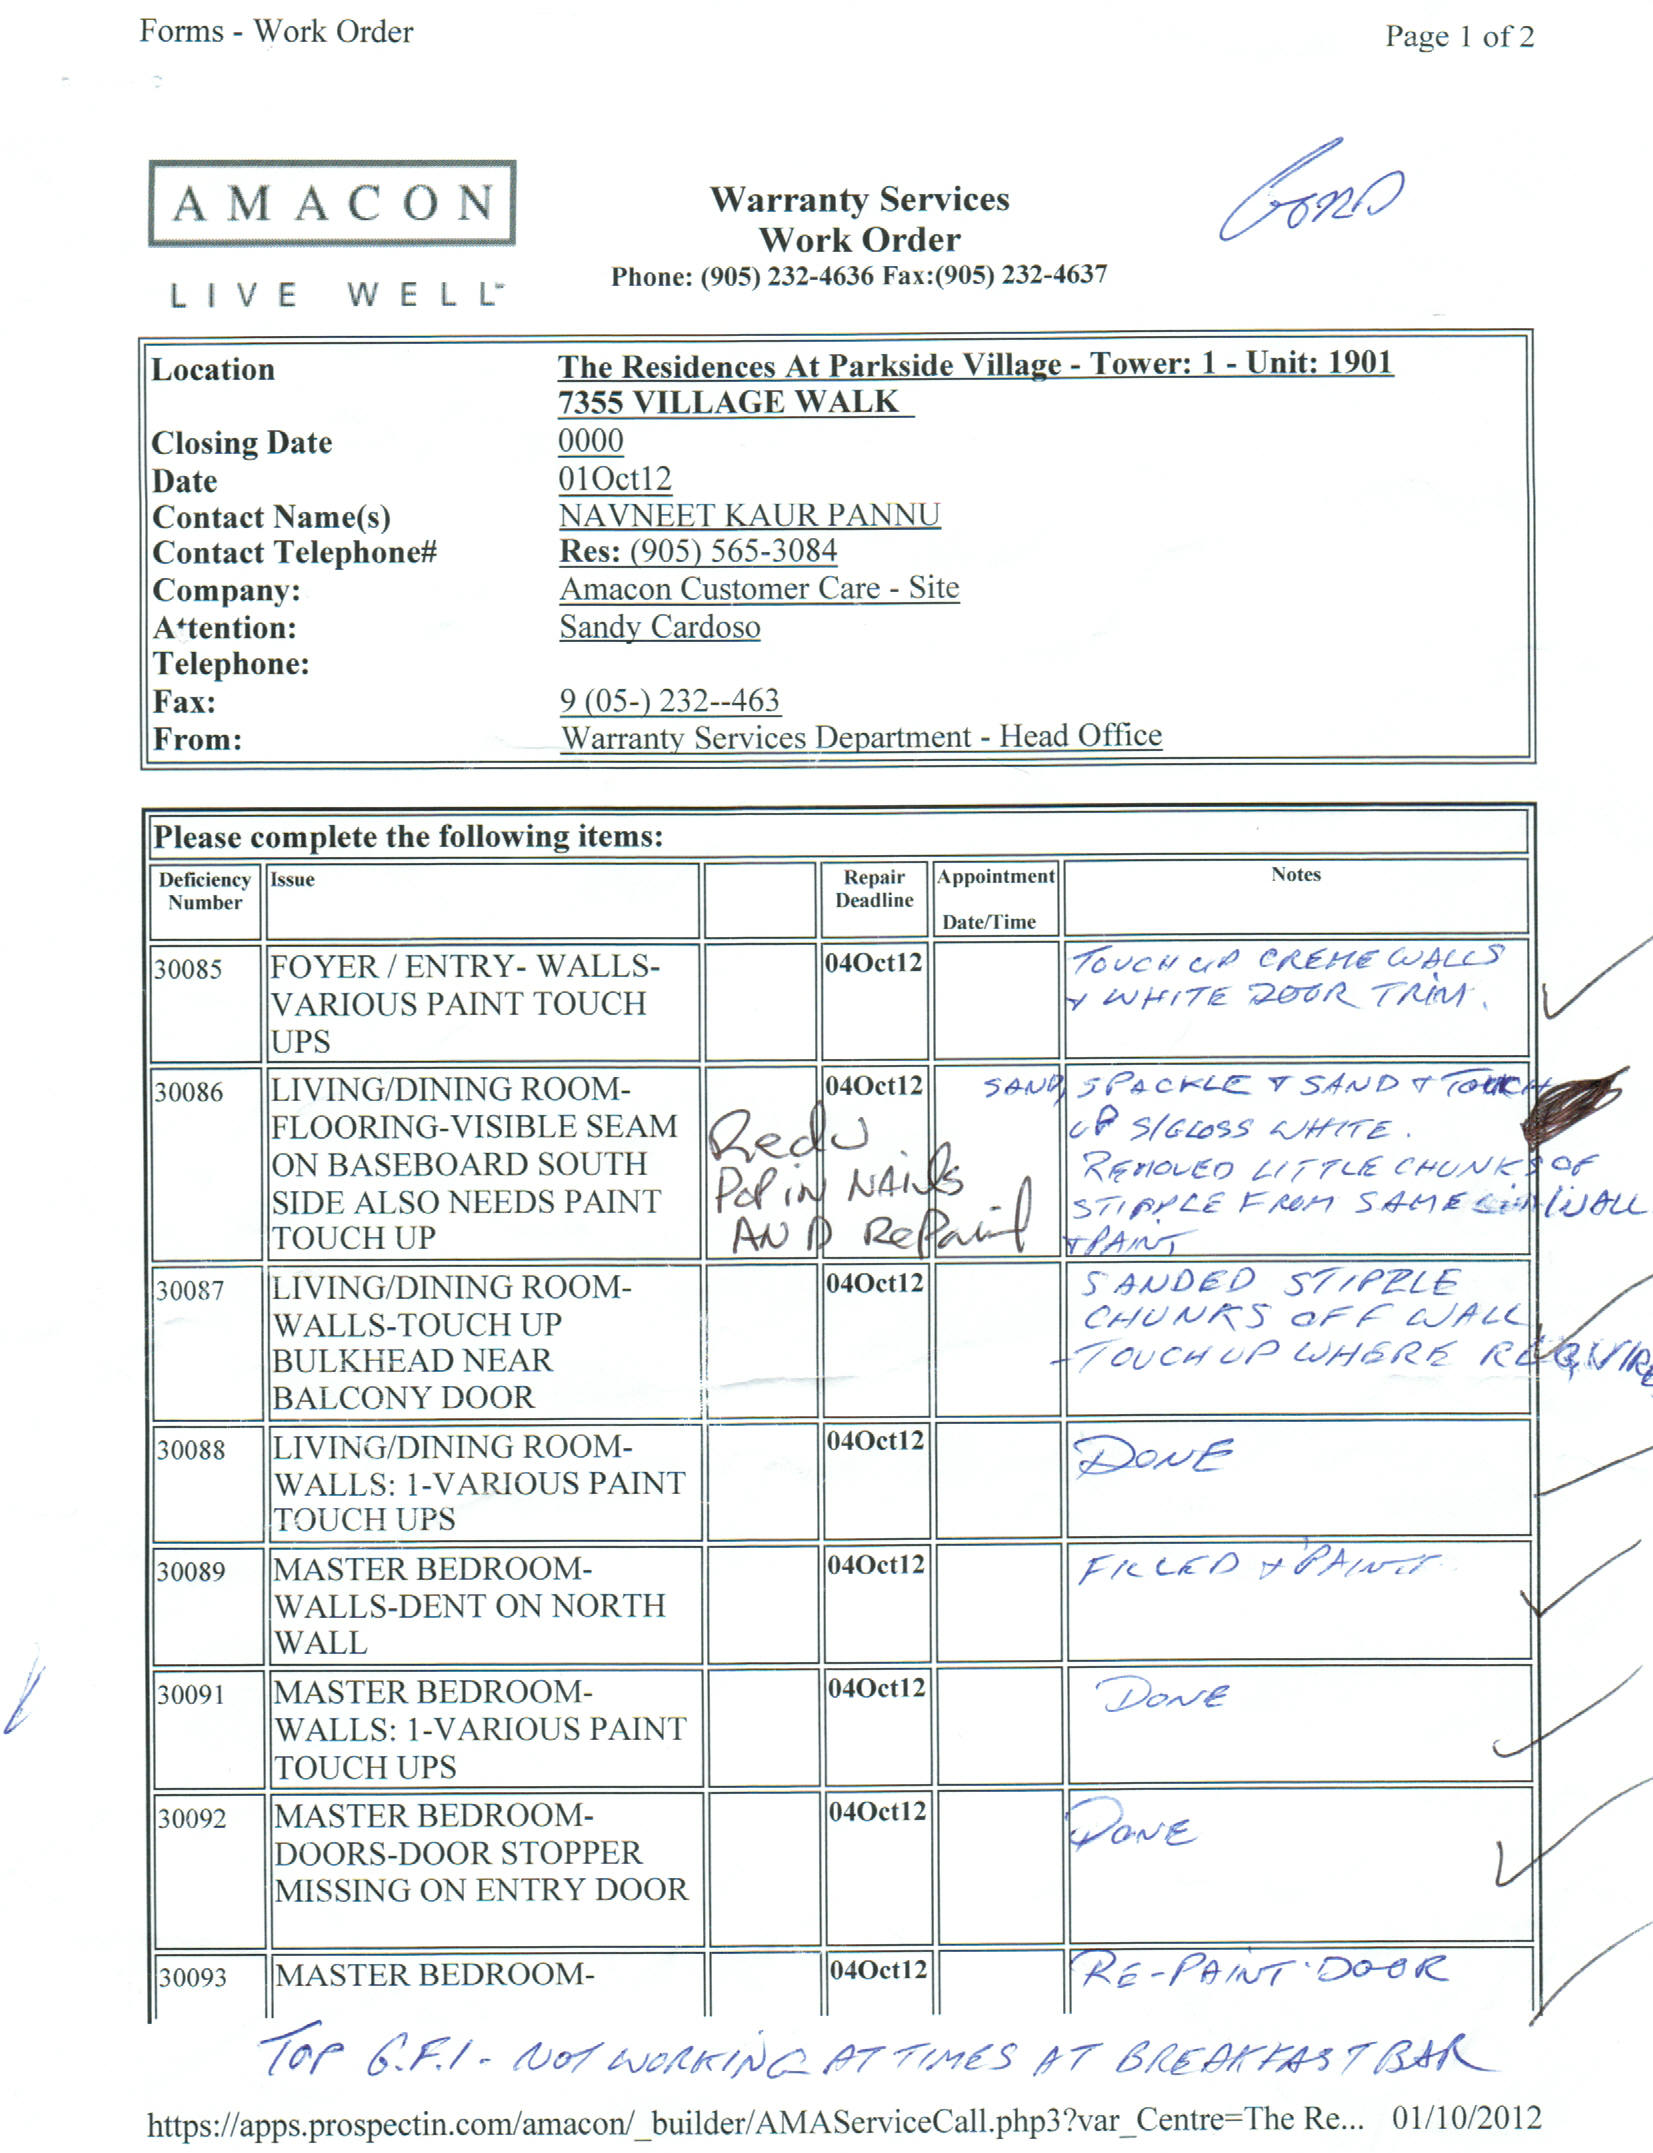 Forms - Work Order
Page 1 of 2
AMACON
LIVE WELL
Warranty Services
Work Order
Phone: (905) 232-4636 Fax:(905) 232-4637
Location
The Residences At Parkside Village - Tower: 1 - Unit: 1901
7355 VILLAGE WALK
Closing Date
0000
Date
01Oct12
Contact Name(s)
NAVNEET KAUR PANNU
Contact Telephone#
Res: (905) 565-3084
Company:
Amacon Customer Care - Site
Attention:
Sandy Cardoso
Telephone:
Fax:
9 (05-) 232--463
From:
Warranty Services Department - Head Office
Please complete the following items:
Deficiency
Number
Issue
Repair
Deadline
Appointment
Date/Time
Notes
30085
FOYER / ENTRY- WALLS-
VARIOUS PAINT TOUCH
UPS
04Oct12
TOUCH UP CREME WALLS
+ WHITE DOOR TRIM.
30086
LIVING/DINING ROOM-
FLOORING-VISIBLE SEAM
ON BASEBOARD SOUTH
SIDE ALSO NEEDS PAINT
TOUCH UP
Redu
POP IN NAILS
AND RePaint
04Oct12
SAND, SPACKLE + SAND + TOUCH
UP S/GLOSS WHITE.
REMOVED LITTLE CHUNKS OF
STIPPLE FROM SAME WALL
+ PAINT
30087
LIVING/DINING ROOM-
WALLS-TOUCH UP
BULKHEAD NEAR
BALCONY DOOR
04Oct12
SANDED STIPPLE
CHUNKS OFF WALL
-TOUCH UP WHERE REQUIRE
30088
LIVING/DINING ROOM-
WALLS: 1-VARIOUS PAINT
TOUCH UPS
04Oct12
DONE
30089
MASTER BEDROOM-
WALLS-DENT ON NORTH
WALL
04Oct12
FILLED + PAINT
30091
MASTER BEDROOM-
WALLS: 1-VARIOUS PAINT
TOUCH UPS
04Oct12
DONE
30092
MASTER BEDROOM-
DOORS-DOOR STOPPER
MISSING ON ENTRY DOOR
04Oct12
DONE
30093
MASTER BEDROOM-
04Oct12
RE-PAINT DOOR
TOP G.F.I - NOT WORKING AT TIMES AT BREAKFAST BAR
https://apps.prospectin.com/amacon/_builder/AMAServiceCall.php3?var_Centre=The Re... 01/10/2012